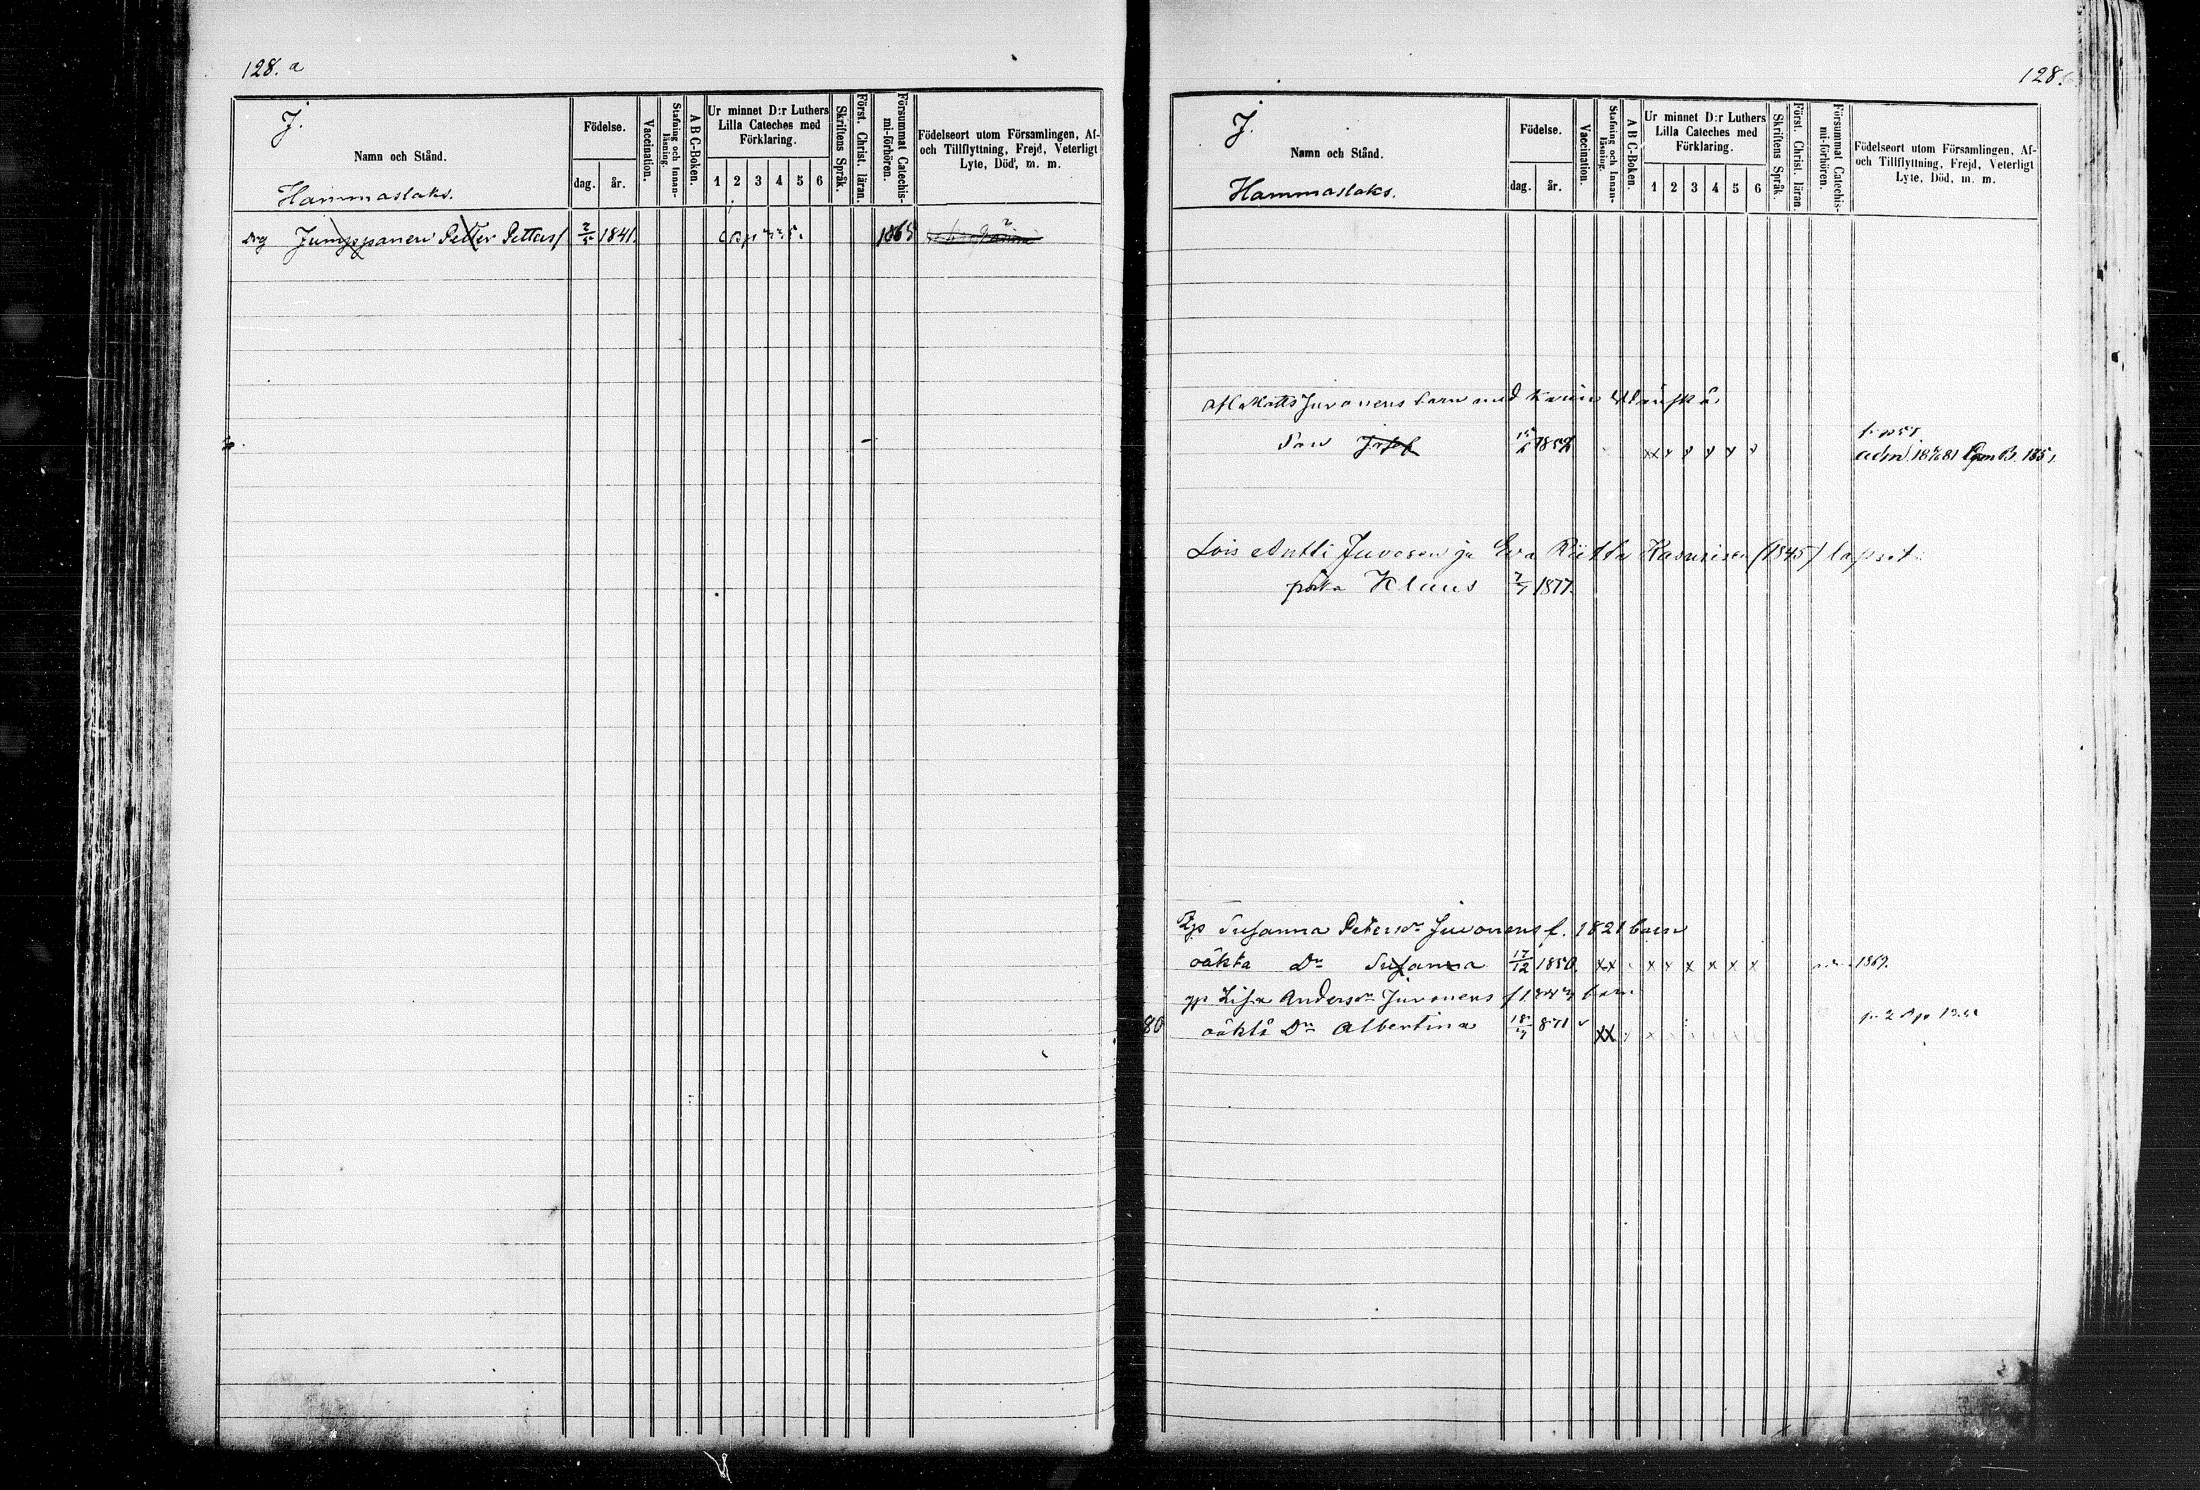 128. a
J.
Namn och Stånd.
Hammaslaks.
Födelse.
dag. år.
Vaccination.
Stafning och Innan-läsning.
A B C-Boken.
Ur minnet D:r Luthers
Lilla Cateches med
Förklaring.
1 2 3 4 5 6
Skriftens Språk.
Först. Christ. läran.
Försummat Catechis-mi-förhören.
Födelseort utom Församlingen, Af-
och Tillflyttning, Frejd, Veterligt
Lyte, Död, m. m.
Drg Jumppanen Petter Petters 2/5 1841. 1865
128.
J.
Namn och Stånd.
Hammaslaks.
Födelse.
dag. år.
Vaccination.
Stafning och Innan-läsning.
A B C-Boken.
Ur minnet D:r Luthers
Lilla Cateches med
Förklaring.
1 2 3 4 5 6
Skriftens Språk.
Först. Christ. läran.
Försummat Catechis-mi-förhören.
Födelseort utom Församlingen, Af-
och Tillflyttning, Frejd, Veterligt
Lyte, Död, m. m.
Matts Juvonens barn med Karin
Son Josef x x x x x x
Lois Antti Juvosen ja Eva Riitta Kasurisen (1845) lapset
poika Klaus 7/7 1877.
Susanna Petersdr Juvonens f. 1821 barn
oäkta Dr Susanna 17/12 1850. x x x x x x x x 1869.
gp Lisa Andersdr Juvonens barn
80 oäkta Dr Albertina 18/7 871 x x